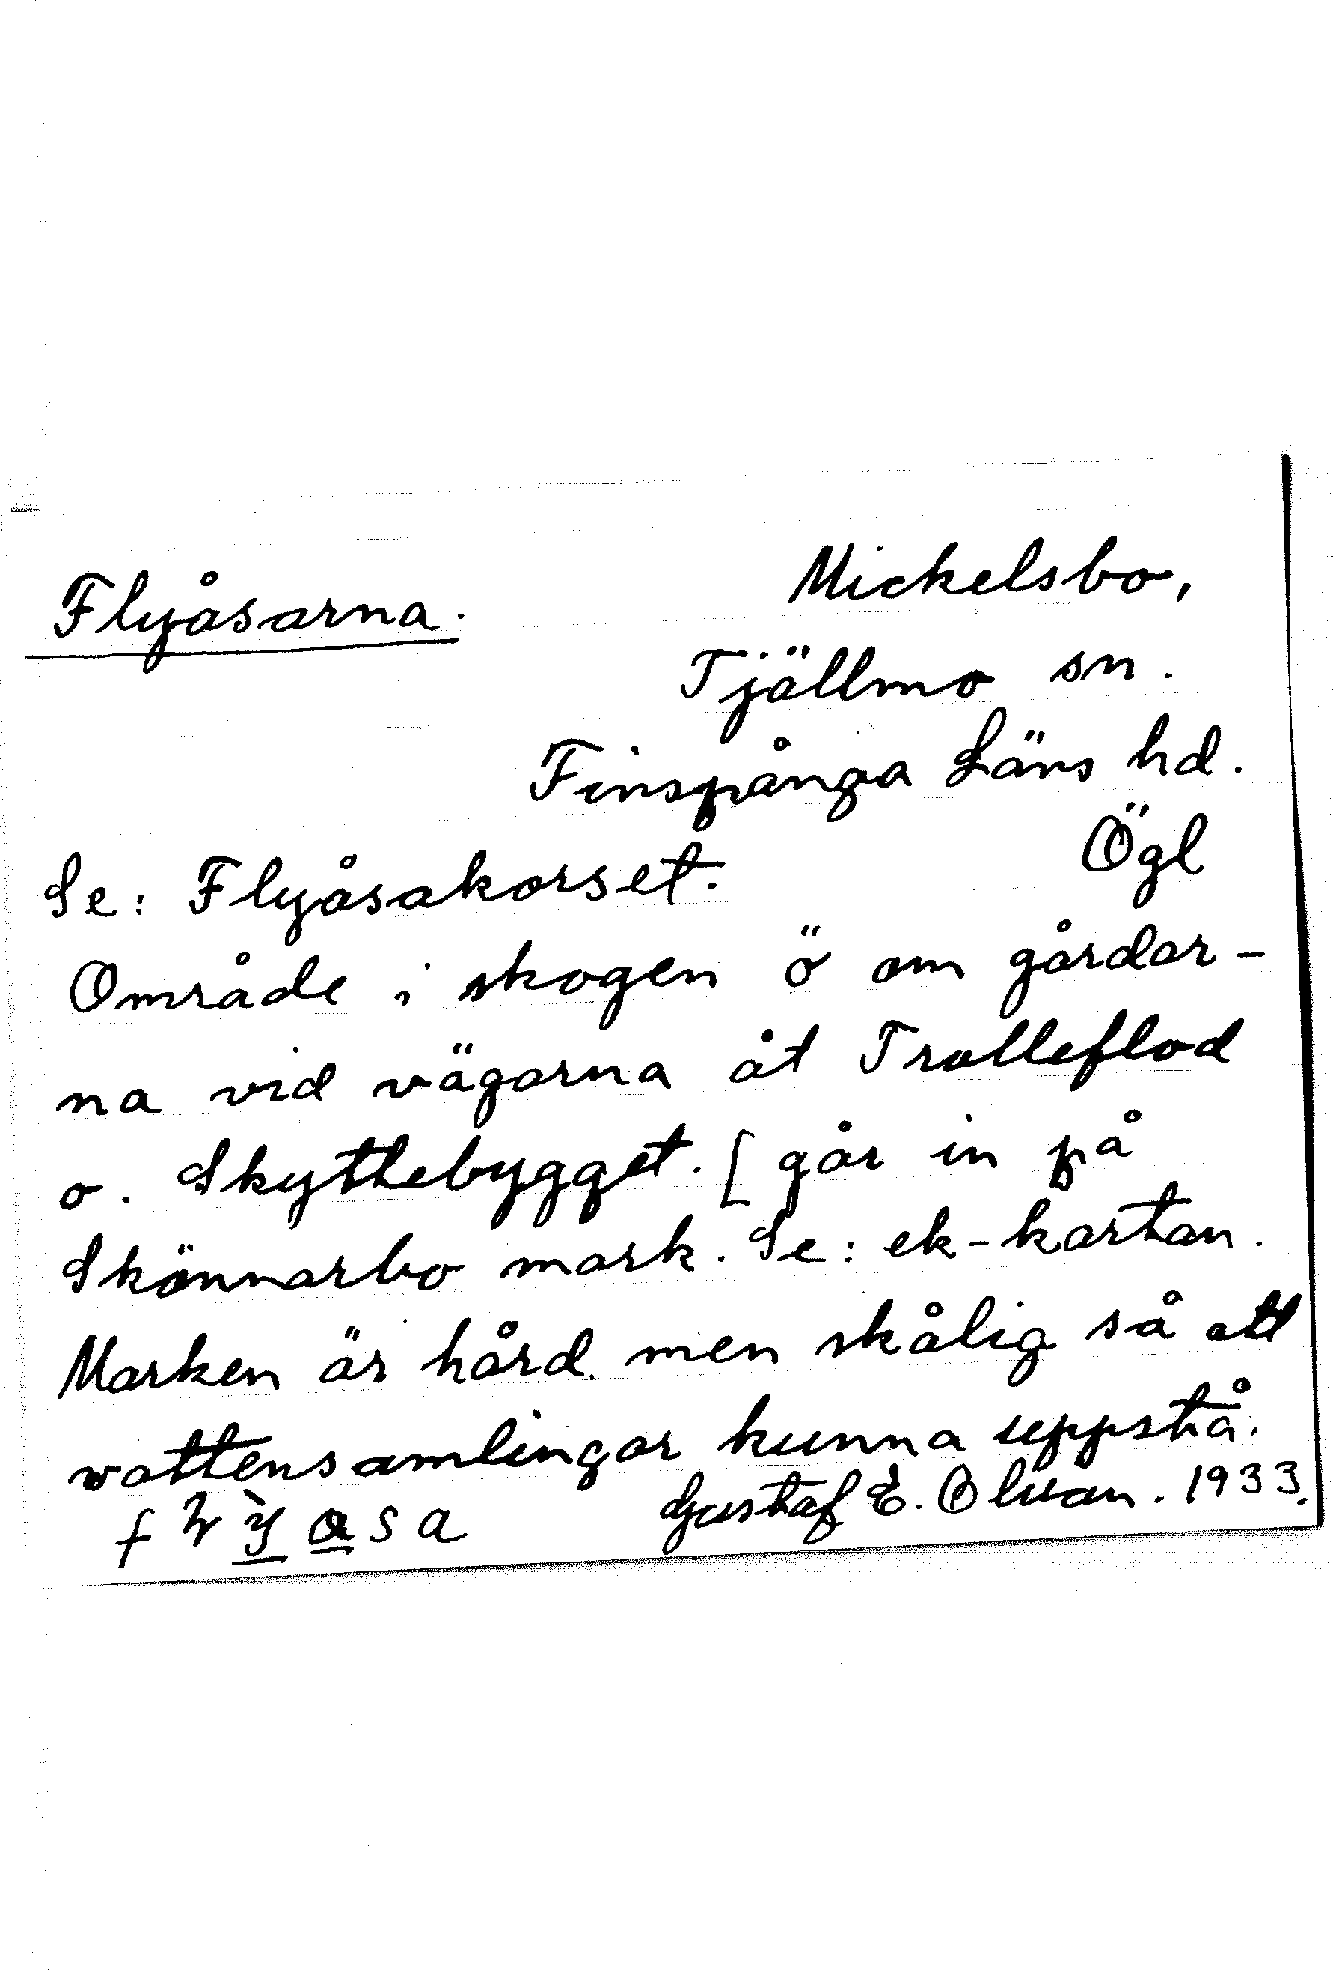 Flyåsarna.
Mickelsbo,
Tjällmo sn.
Finspånga Läns hd.
Ögl
Se: Flyåsakorset.
Område i skogen ö om gårdar-
na vid vägarna åt Trolleflod
o. Skyttebygget. [ går in på
Skönnarbo mark. Se: ek-kartan.
Marken är hård men skålig så att
vattensamlingar kunna uppstå.
Gustaf E. 1933.